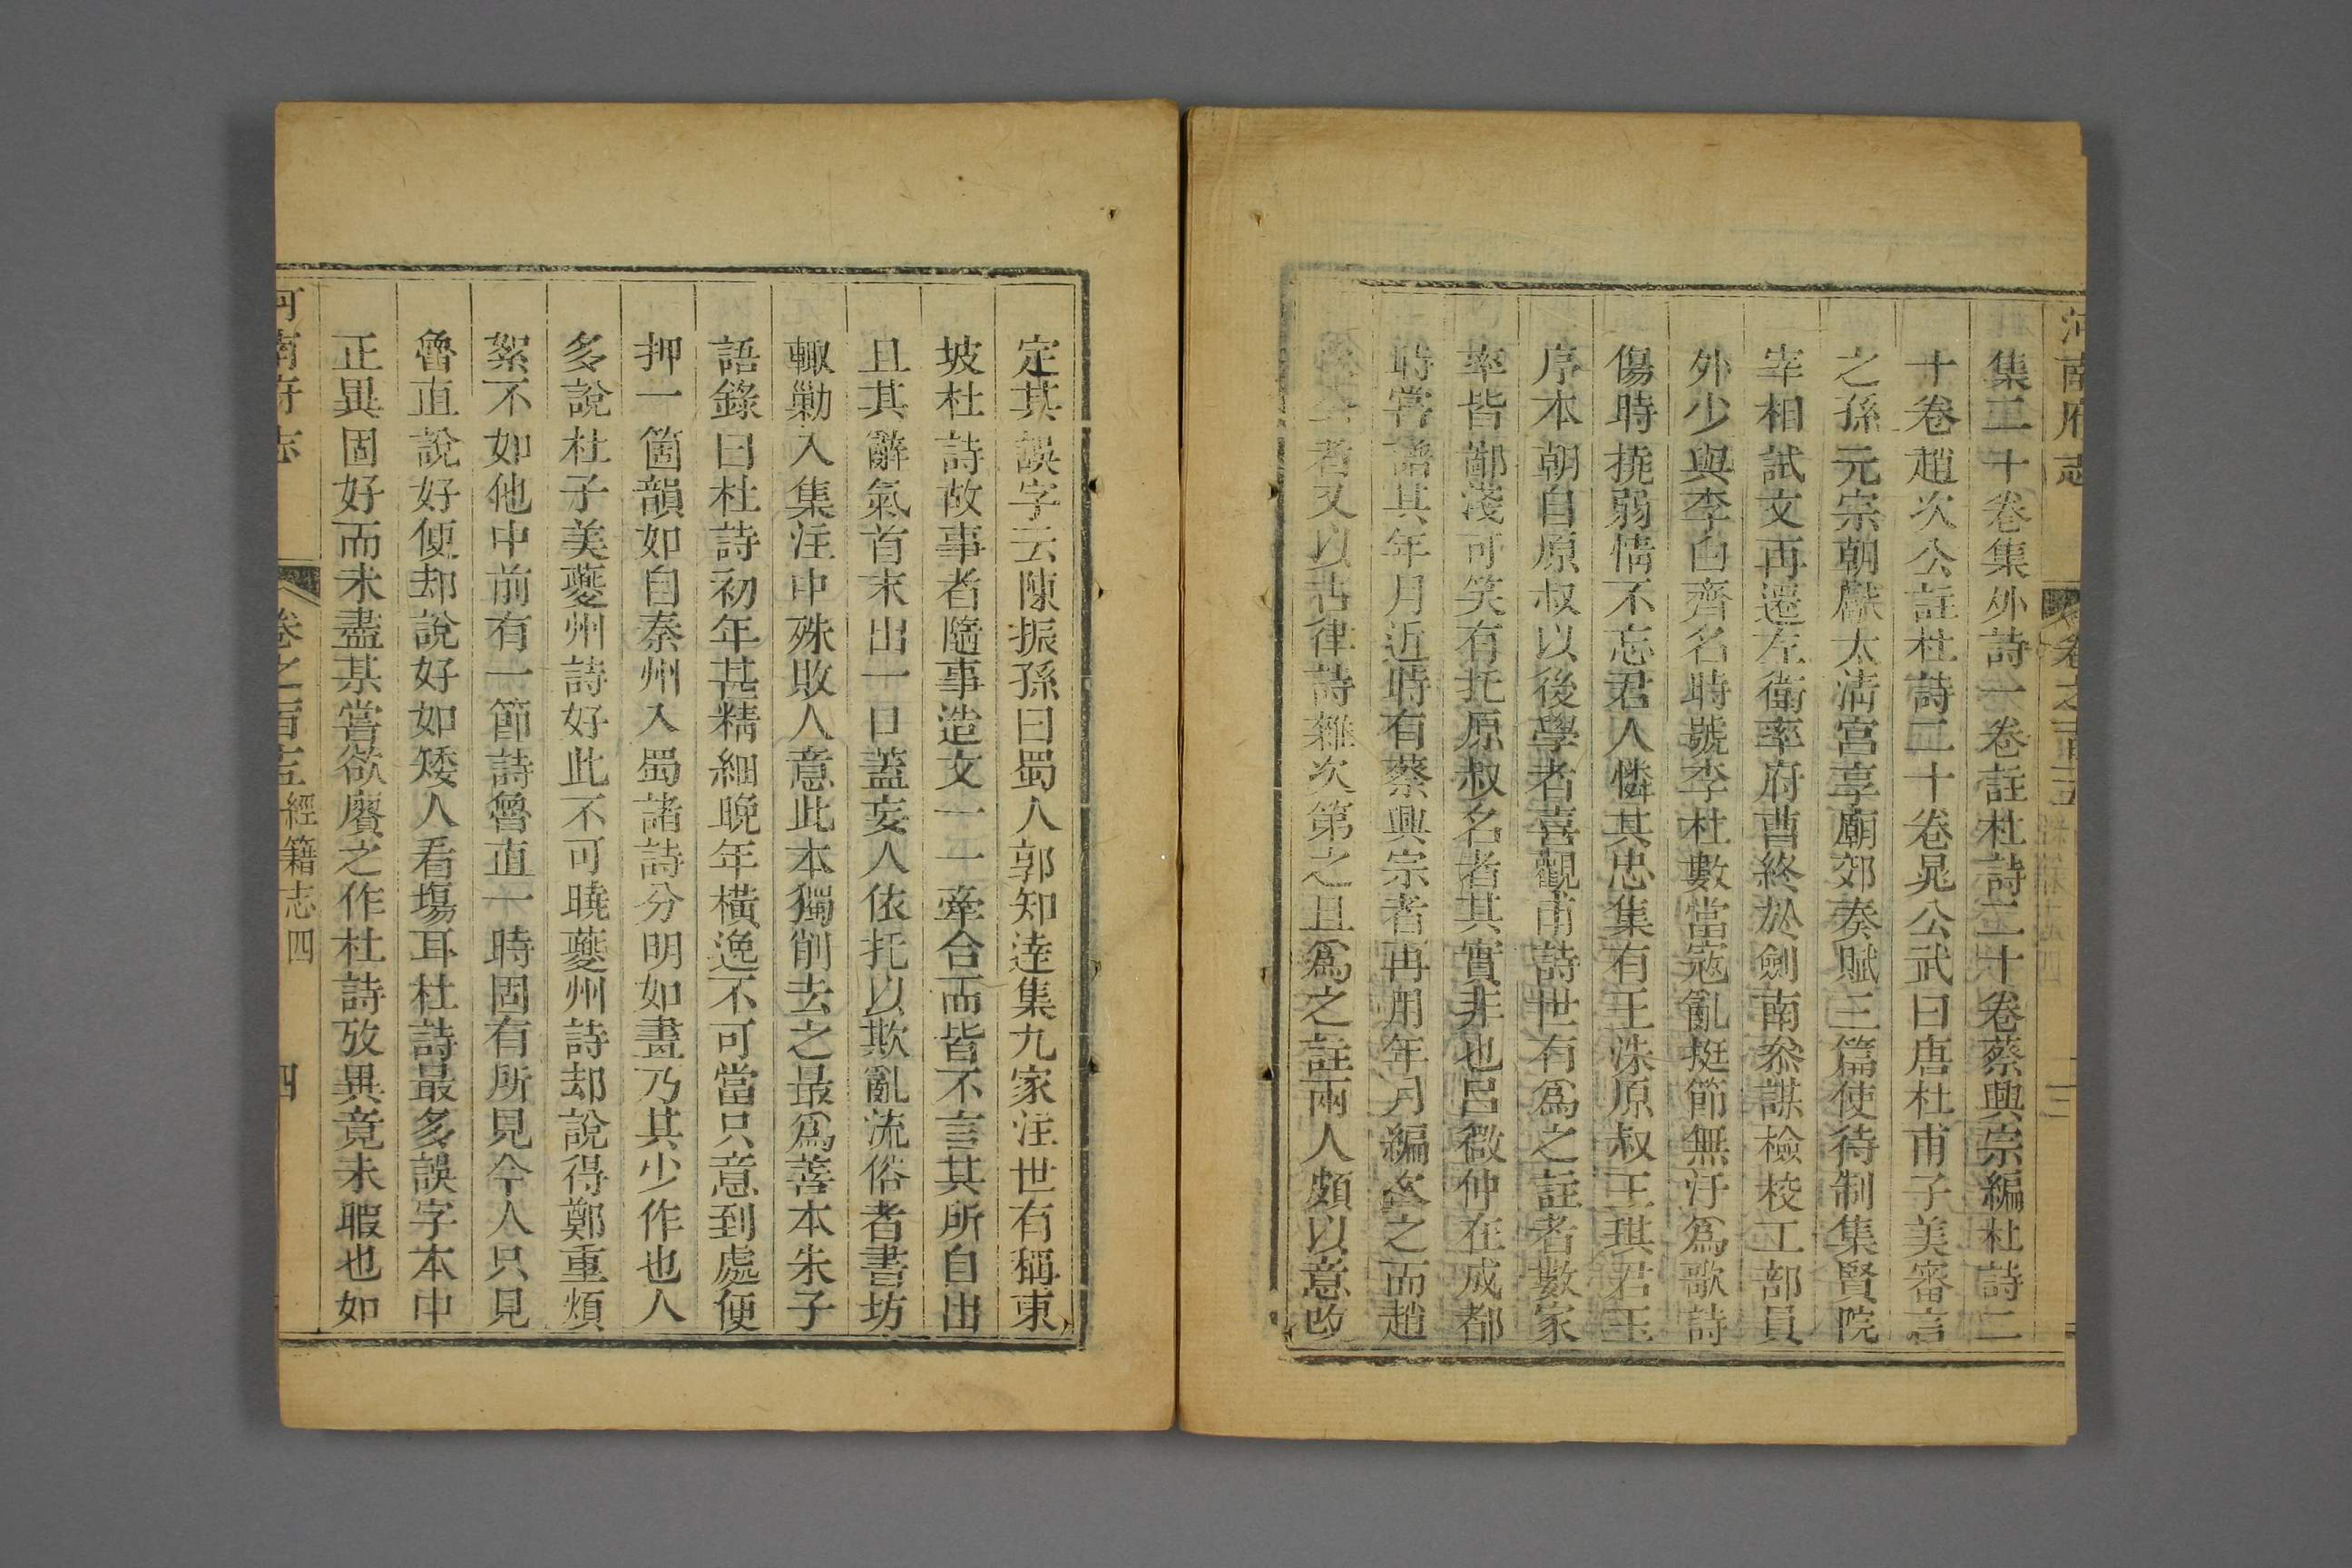 河南府志 卷之百五 三
集二十卷集外詩一卷註杜詩二十卷蔡興宗編杜詩二
十卷趙次公註杜詩二十卷晁公武曰唐杜甫子美審言
之孫元宗朝獻太淸宮享廟郊奏賦三篇使待制集賢院
宰相試文再遷左衛率府曹終於劍南叅謀檢校工部員
外少與李白齊名時號李杜數當寇亂挺節無汙爲歌詩
傷時撓弱情不忘君人憐其忠集有王洙原叔王琪君玉
序本朝自原叔以後學者喜觀甫詩世有爲之註者數家
率皆鄙淺可笑有托原叔名者其實非也呂微仲在成都
時嘗譜其年月近時有蔡興宗者再用年月編次之而趙
次公者又以古律詩雜次第之且爲之註兩人頗以意改
定其誤字云陳振孫曰蜀人郭知達集九家注世有稱東
坡杜詩故事者隨事造文一一牽合而皆不言其所自出
且其辭氣首末出一口蓋妄人依托以欺亂流俗者書坊
輙勦入集注中殊敗人意此本獨削去之最爲善本朱子
語錄曰杜詩初年甚精細晚年橫逸不可當只意到處便
押一箇韻如自秦州入蜀諸詩分明如畫乃其少作也人
多說杜子美夔州詩好此不可曉夔州詩却說得鄭重煩
絮不如他中前有一節詩魯直一時固有所見今人只見
魯直說好便却說好如矮人看塲耳杜詩最多誤字本中
正異固好而未盡某嘗欲廣之作杜詩攷異竟未暇也如
河南府志 卷之百五 經籍志四 四